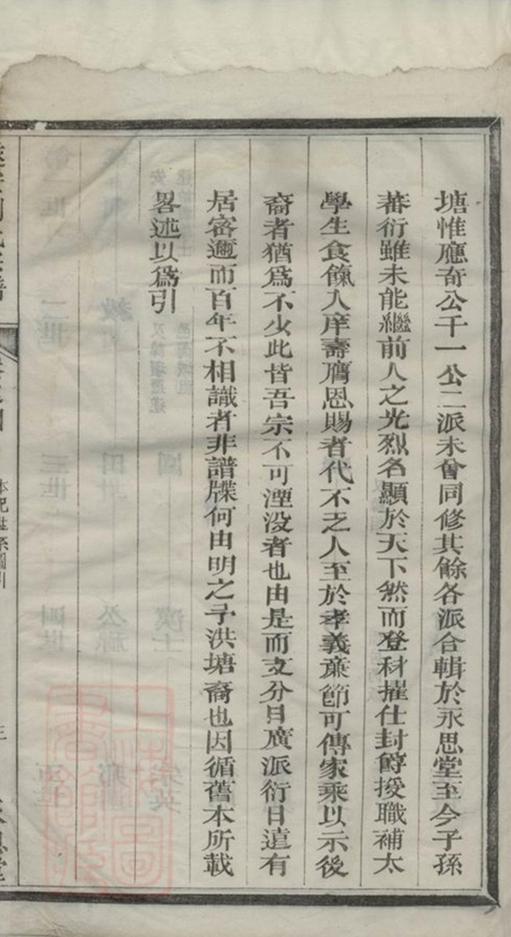 塘惟應奇公千一公二派未會同修其餘各派合輯於永思堂至今子孫
蕃衍雖未能繼前人之光烈名顯於天下然而登科擢仕封爵授職補太
學生食餼入庠壽膺恩賜者代不乏人至於孝義廉節可傳家乘以示後
裔者猶為不少此皆吾宗不可湮没者也由是而支分日廣派衍日遠有
居密邇而百年不相識者非譜牒何由明之予洪塘裔也因循舊本所載
畧述以為引